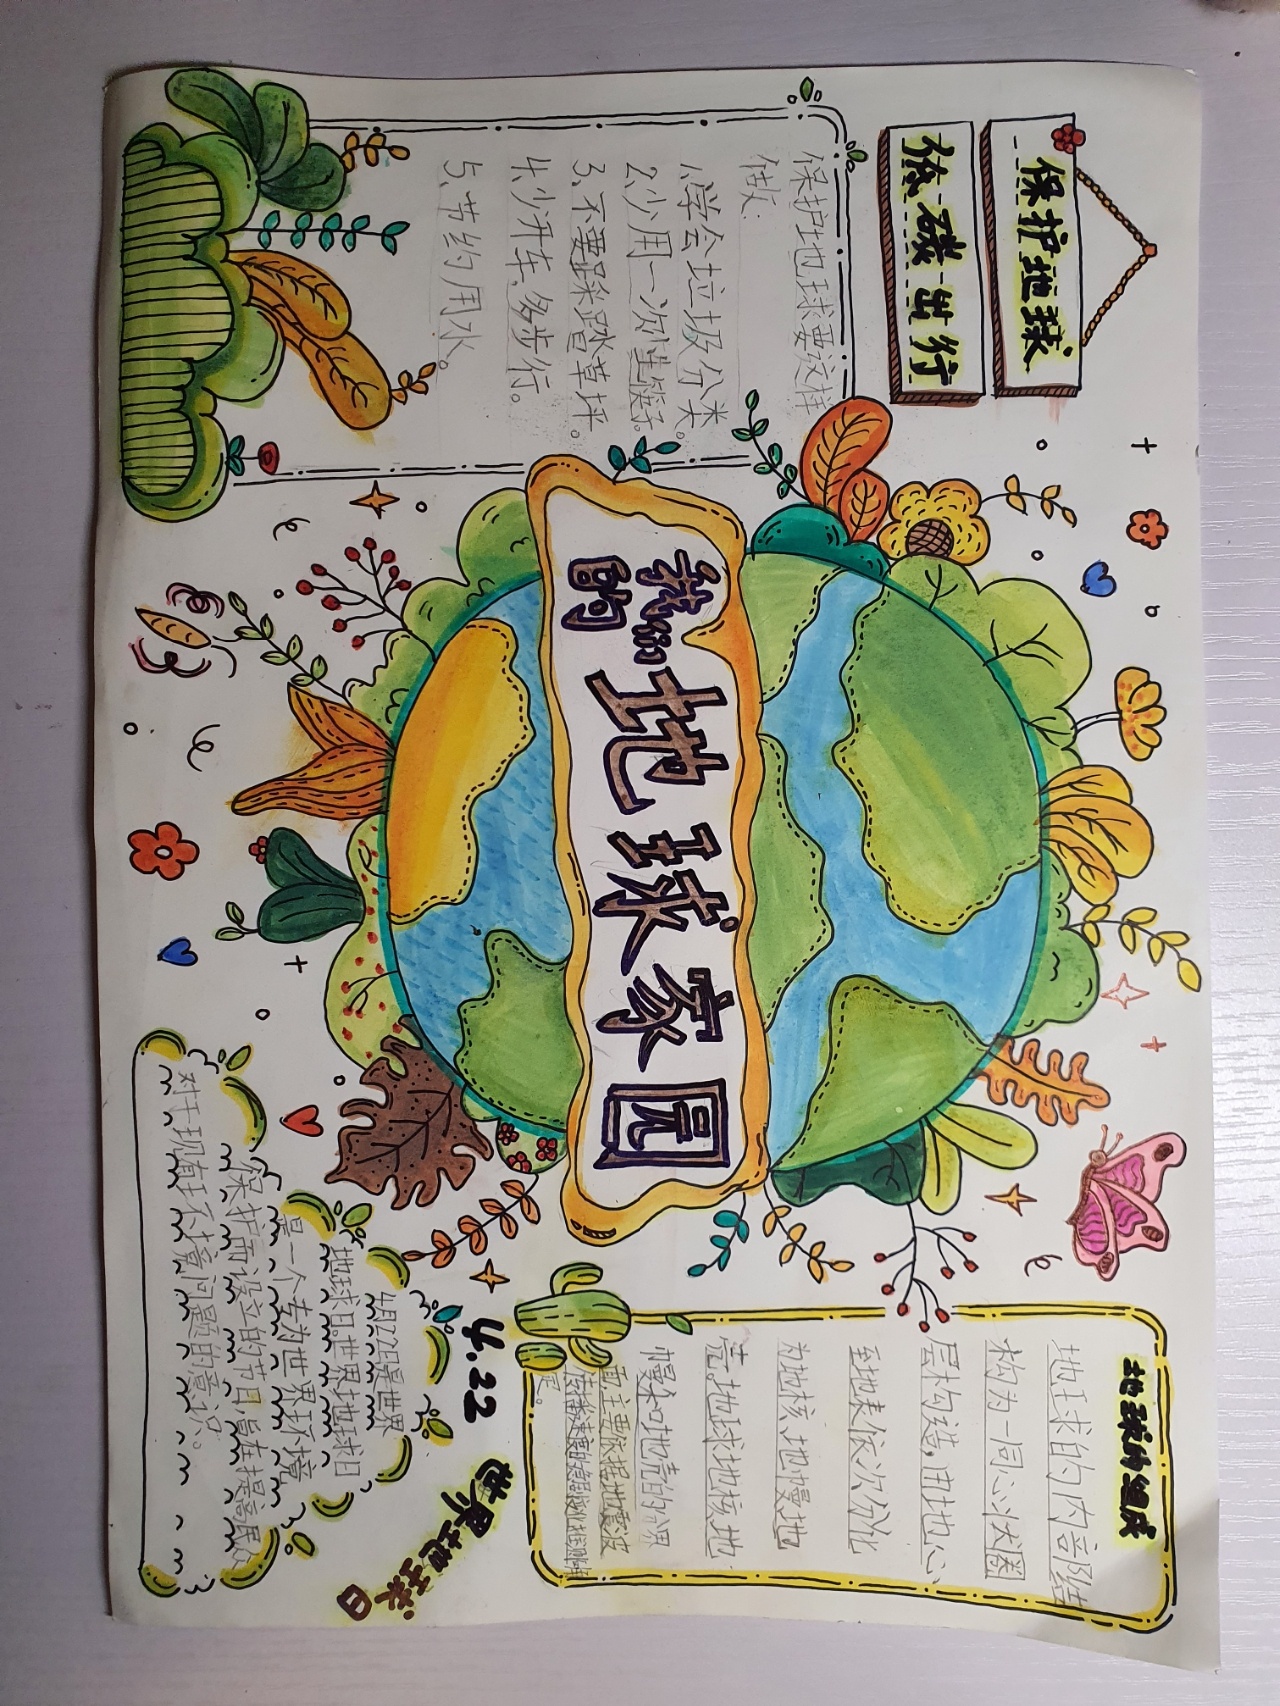 保护地球
依碳出行
保护地球要这样
做:
1.学会垃圾分类。
2.少用一次性筷子。
3.不要踩踏草坪。
4.少开车,多步行。
5.节约用水。
我们的
地球家园
地球的组成
地球的内部结
构为一同心状圈
层构造,由地心
至地表依次分化
为地核、地幔、地
壳。地球地核、地
幔和地壳的分界
面,主要依据地震波
传播速度的急剧变化推测确
定。
4.22
世界地球日
4月22日是世界
地球日。世界地球日
是一个专为世界环境
保护而设立的节日,旨在提高民众
对于现有环境问题的意识。